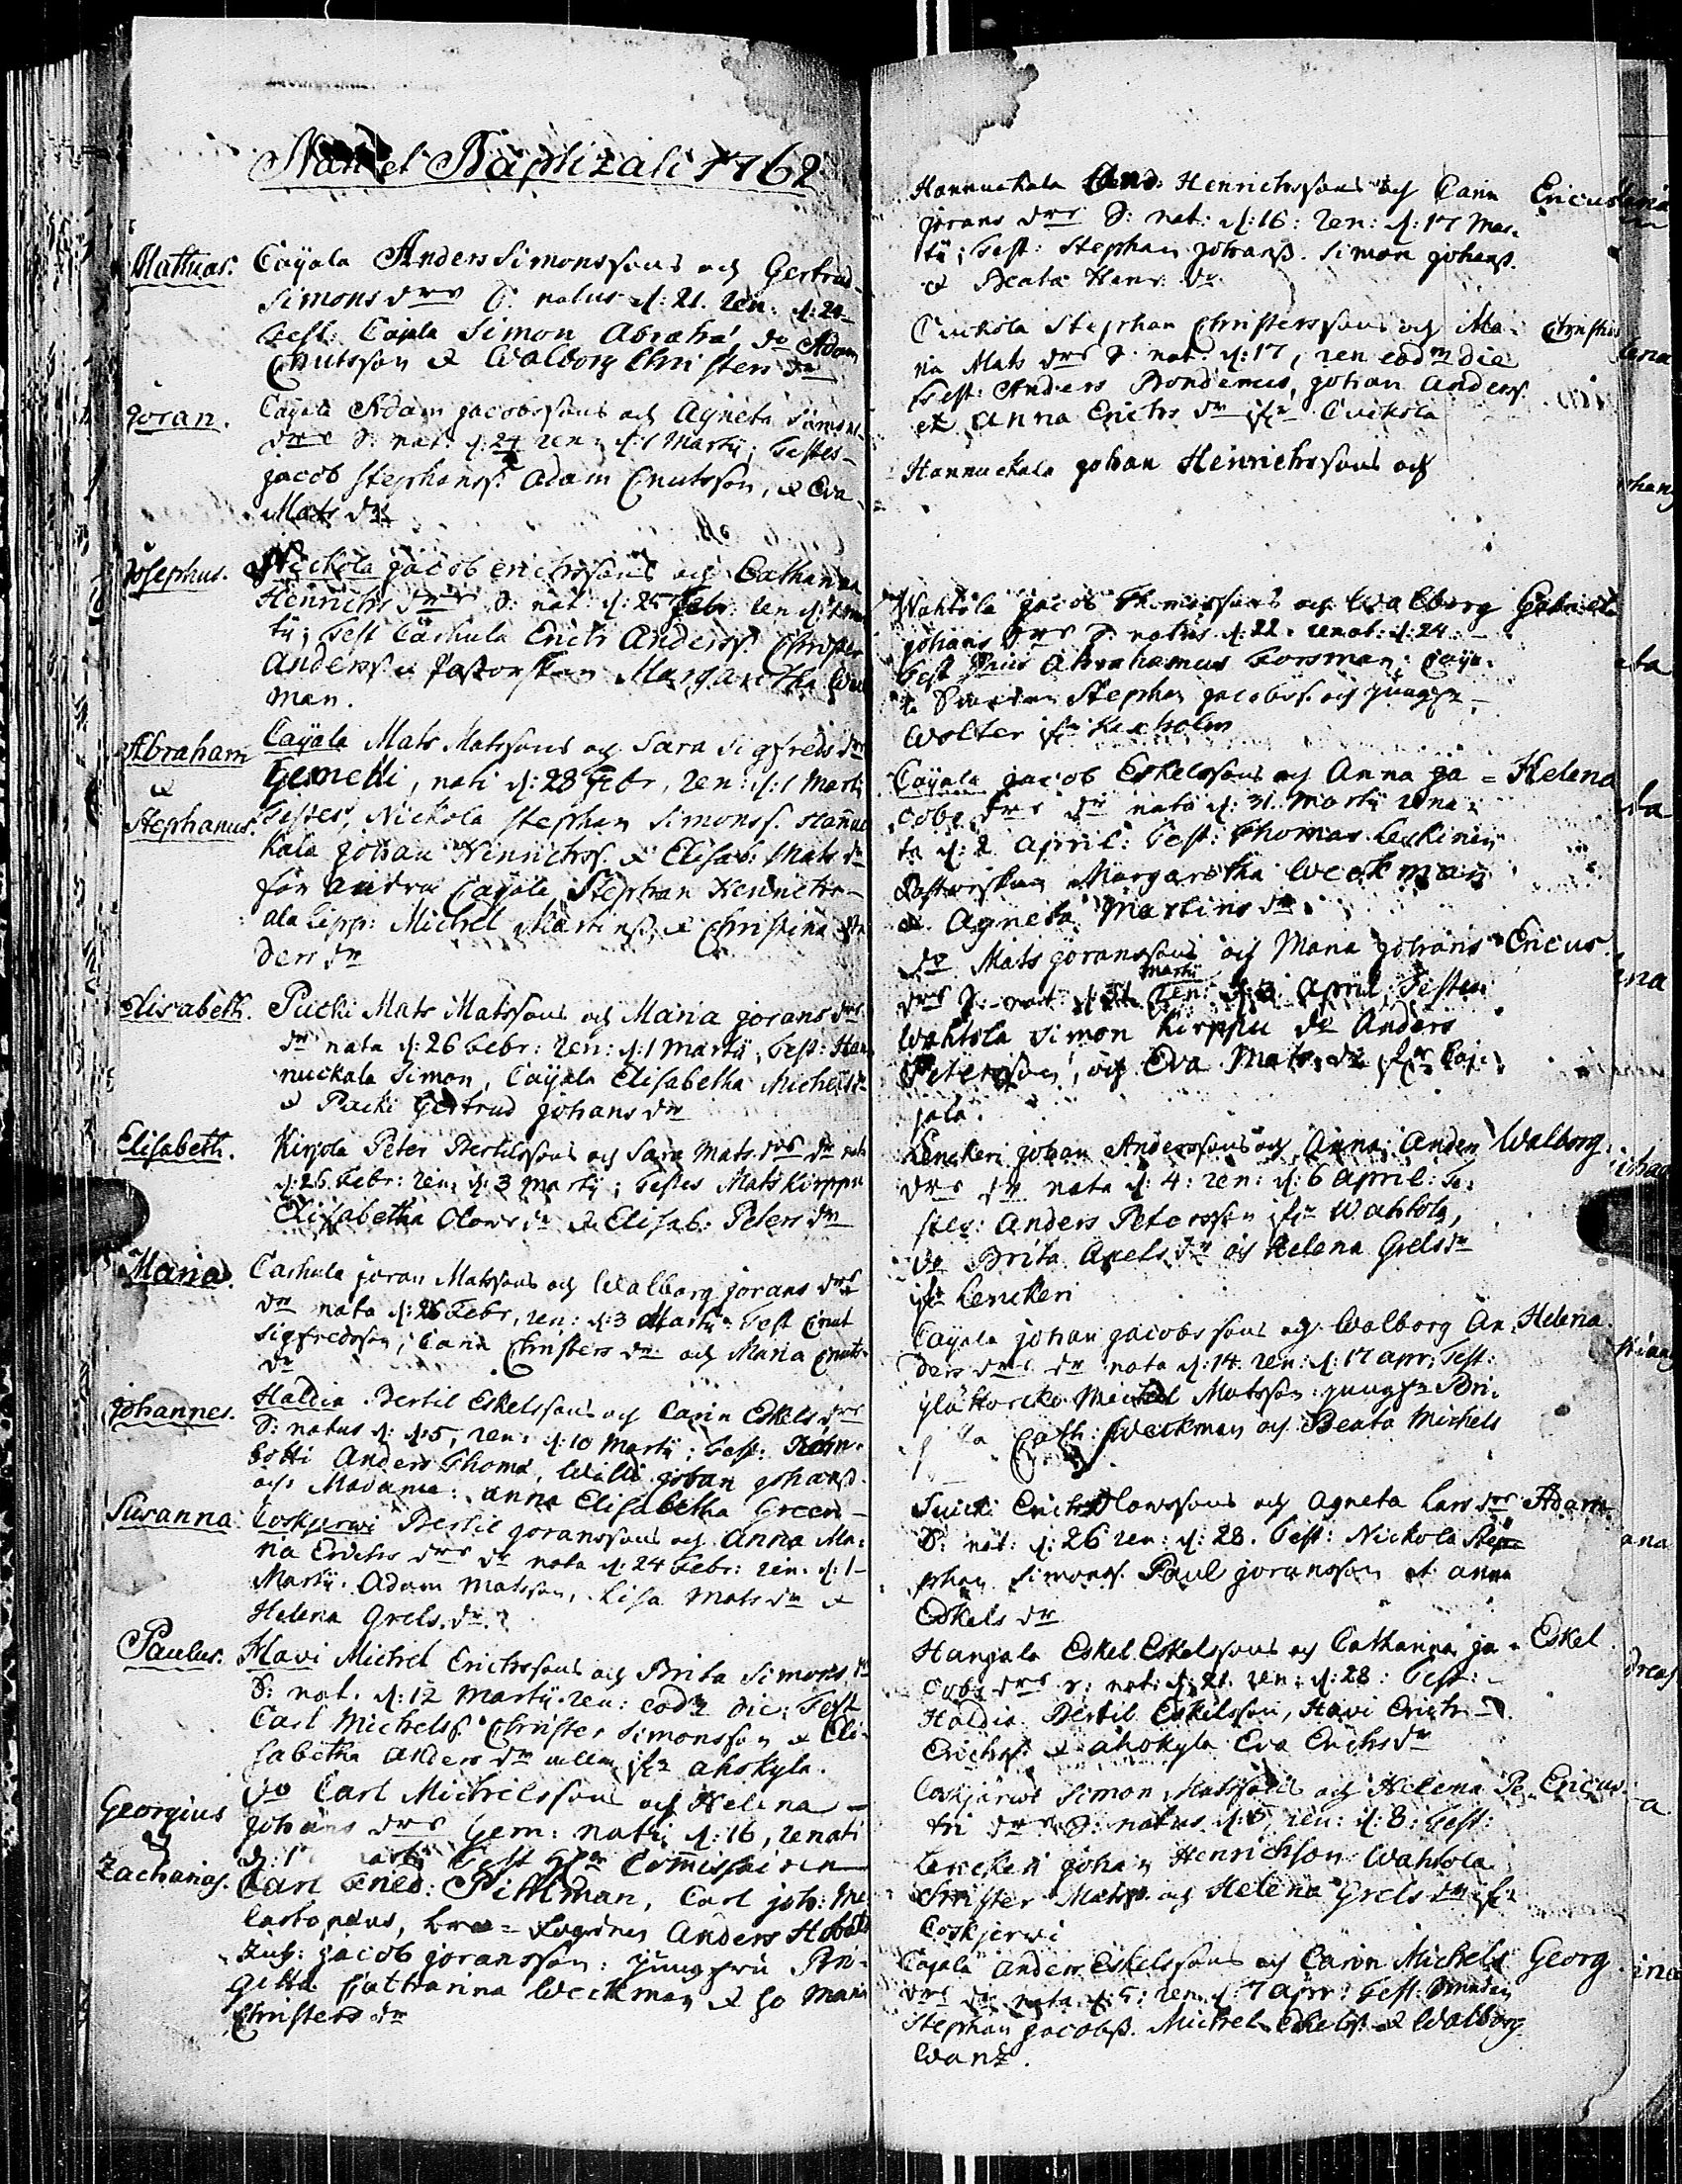 Nati et Baptizati 1762
Mathias. Cayala Anders Simonssons och Gertrud
Simons drs S. natus d: 21. ren. d: 24
Test: Cajala Simon Abraha, do Adam
Cnutsson & Walborg Christers dr
Joran. Cayala Adam Jacobssons och Agneta Simons
drs S: nat: d: 24 ren: d: 1 Martij; Testes
Jacob Stephanss. Adam Cnutsson, & Eva
Mats dr
Josephus. Nickola Jacob Erichssons och Catharina
Henrichs drs S: nat: d: 25 Febr: ren d: 1 Mar
tij; Test Carhula Erich Anderss. Christer
Anderss & Pastorskan Margaretha Weck
man.
Abraham Cayala Mats Matssons och Sara Sigfreds dr
& Gemelli, nati d: 28 Febr, ren: d: 1 Martij
Stephanus. Testes, Nickola Stephan Simonss. Hannuc
kala Johan Henrichss. & Elisab: Mats dr
för andra Cayala Stephan Henrichs
Michel Mårtenss. & Christina An
ders dr
Elisabeth. Pucki Mats Matssons och Maria Jorans drs
dr nata d: 26 Febr: ren: d: 1 Martij, Test: Han
nuckala Simon, Cayala Elisabetha Michels dr
& Pucki Gertrud Johans dr
Elisabeth. Kirjola Peter Bertilssons och Sara Mats drs dr nata
d: 26 Febr: ren: d: 3 Martij; Testes Mats Kirppu
Elisabetha Olows dr & Elisab: Peters dr
Maria. Carhula Joran Matssons och Walborg Jorans drs
dr nata d: 26 Febr, ren: d: 3 Martij Test Cnut
Sigfredsson, Carin Christers dr och Maria Cnuts
dr
Johannes. Haldia Bertil Eskelssons och Carin Eskels drs
S: natus d: 5, ren: d: 10 Martij: Test:
Anders Thoma, Willi Johan Johanss.
och Madame: Anna Elisabetha Green
Susanna Coskjerwi Bertil Joranssons och Anna Ma
ria Erichs drs dr nata d: 24 Febr: ren. d: 1
Martij. Adam Matsson, Lisa Mats dr &
Helena Grels dr
Paulus. Hawi Michel Erichssons och Brita Simons drs
S: nat. d: 12 Martij. ren: eodm die: Test
Carl Michelss. Christer Simonsson & Eli
sabetha Anders dr allan ifrn Ahokyla.
Georgius do Carl Michelssons och Helena
& Johans drs Gem: nati d: 16, renati
Zacharias. d: 1 Test Hr Comissairen
Carl Fried: Pihlman, Carl Joh: Me
lartopaeus, Anders
Jacob Joransson: Jungfru Bri
gitta Catharina Weckman & Maria
Christers dr
Hannuckala And: Henrichssons och Carin Ericus
Jorans drs S: nat: d: 16: ren: d: 17 Mar
tij; Test: Stephan Johanss. Simon Johanss.
& Beata Henr: dr
Cuckola Stephan Christerssons och Ma Christer
ria Mats drs S: nat: d: 17, ren eodm die
Test: Anders Bondemus, Johan Anderss.
et Anna Erichs dr ifrn Cuckola
Hannuckala Johan Henrichssons och
Wahtola Jacob Thomassons och Walborg Gabriel
Johans drs S: natus d: 22. renat: d: 24.
Test Abrahamus Forsman: Caya
la Stephan Jacobss. och Jungfr
Wolter ifrn Kexholm
Cayala Jacob Eskelssons och Anna Ja= Helena
cobs drs dr nata d: 31. Martij rena
ta d: 2 April: Test: Thomas Leskinen
Pastorskan Margaretha Weckman
& Agneta Martins dr
do Mats Joranssons och Maria Johans Ericus.
Martij
drs S: nat: d: 31 ren: d: 3 April, Testes
Wahtola Simon Kirppu do Anders
Petersson, och Eva Mats dr ifrn Caj
jala.
Lenckeri Johan Anderssons och Anna Anders Walborg.
drs dr nata d: 4: ren: d: 6 April: Te
stes: Anders Petersson ifrn Wahtola,
do Brita Axels dr och Helena Grels dr
ifrn Lenckeri
Cayala Johan Jacobssons och Walborg An Helena.
ders drs dr nata d: 14. ren: d: 17 apr: Test:
Michel Matsson: Jungfr Bri
ta Cath: Weckman och Beata Michels
Suicki Erich Olowssons och Agneta Lars drs Adam
S: nat: d: 26 ren: d: 28. Test: Nickola Ste=
phan Simonss. Paul Joransson et Anna
Eskels dr
Hanjala Eskel Eskelssons och Catharina Ja= Eskel.
cobs drs S: nat: d: 21. ren: d: 28: Test:
Haldia Bertil Eskelsson, Hawi Erich
Erichss. & Ahokyla Eva Erichs dr
Coskjerwi Simon Matssons och Helena Pe Ericus
tri drs S: natus d: 5, ren: d: 8: Test:
Lenckeri Johan Henrichson Wahtola
Christer Matss. och Helena Grels dr ifr
Coskjerwi
Cajala Anders Eskelssons och Carin Michels Georg
drs nata d: 5: ren d: 7 apr: Test:
Stephan Jacobss. Michel Eskelss. & Walborg
Wanz.